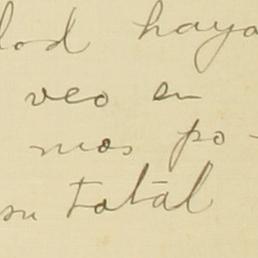 lod haya
veo en
mos po-
su total